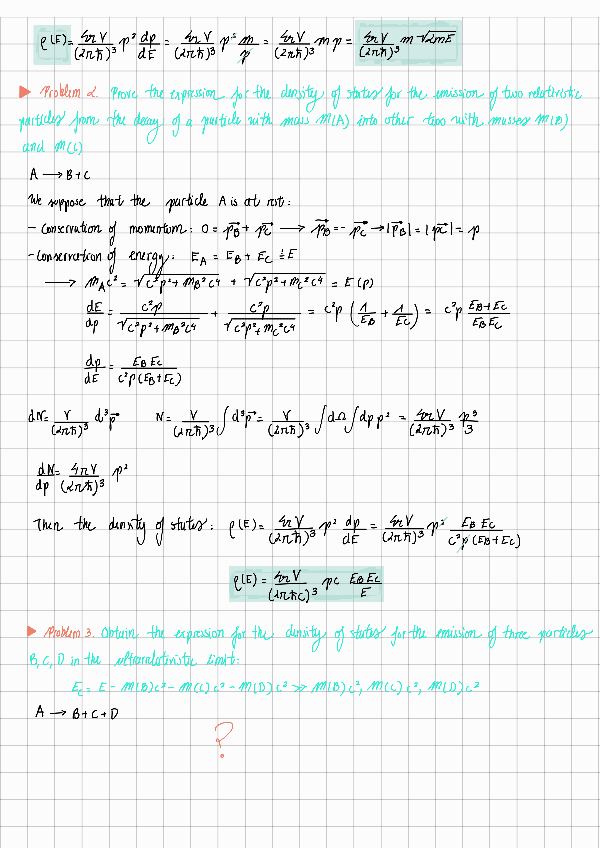 ρ(E) = 4πV/(2πħ)³ p² dp/dE = 4πV/(2πħ)³ p² m/p = 4πV/(2πħ)³ m p = 4πV/(2πħ)³ m √2mE
▶ Problem 2. Prove the expression for the density of states for the emission of two relativistic
particles from the decay of a particle with mass m(A) into other two with masses m(B)
and m(C)
A → B + C
We suppose that the particle A is at rest:
- Conservation of momentum: 0 = p⃗_B + p⃗_C → p⃗_B = - p⃗_C → |p⃗_B| = |p⃗_C| = p
- Conservation of energy: E_A = E_B + E_C ≐ E
→ m_A c² = √(c²p² + m_B²c⁴) + √(c²p² + m_C²c⁴) = E(p)
dE/dp = c²p/√(c²p² + m_B²c⁴) + c²p/√(c²p² + m_C²c⁴) = c²p (1/E_B + 1/E_C) = c²p (E_B + E_C)/(E_B E_C)
dp/dE = E_B E_C/(c²p (E_B + E_C))
dN = V/(2πħ)³ d³p⃗ N = V/(2πħ)³ ∫ d³p⃗ = V/(2πħ)³ ∫ dΩ ∫ dp p² = 4πV/(2πħ)³ p³/3
dN/dp = 4πV/(2πħ)³ p²
Then the density of states: ρ(E) = 4πV/(2πħ)³ p² dp/dE = 4πV/(2πħ)³ p² E_B E_C/(c²p (E_B + E_C))
ρ(E) = 4πV/(2πħc)³ pc E_B E_C/E
▶ Problem 3. Obtain the expression for the density of states for the emission of three particles
B, C, D in the ultrarelativistic limit:
E_C = E - m(B)c² - m(C)c² - m(D)c² ≫ m(B)c², m(C)c², m(D)c²
A → B + C + D
?